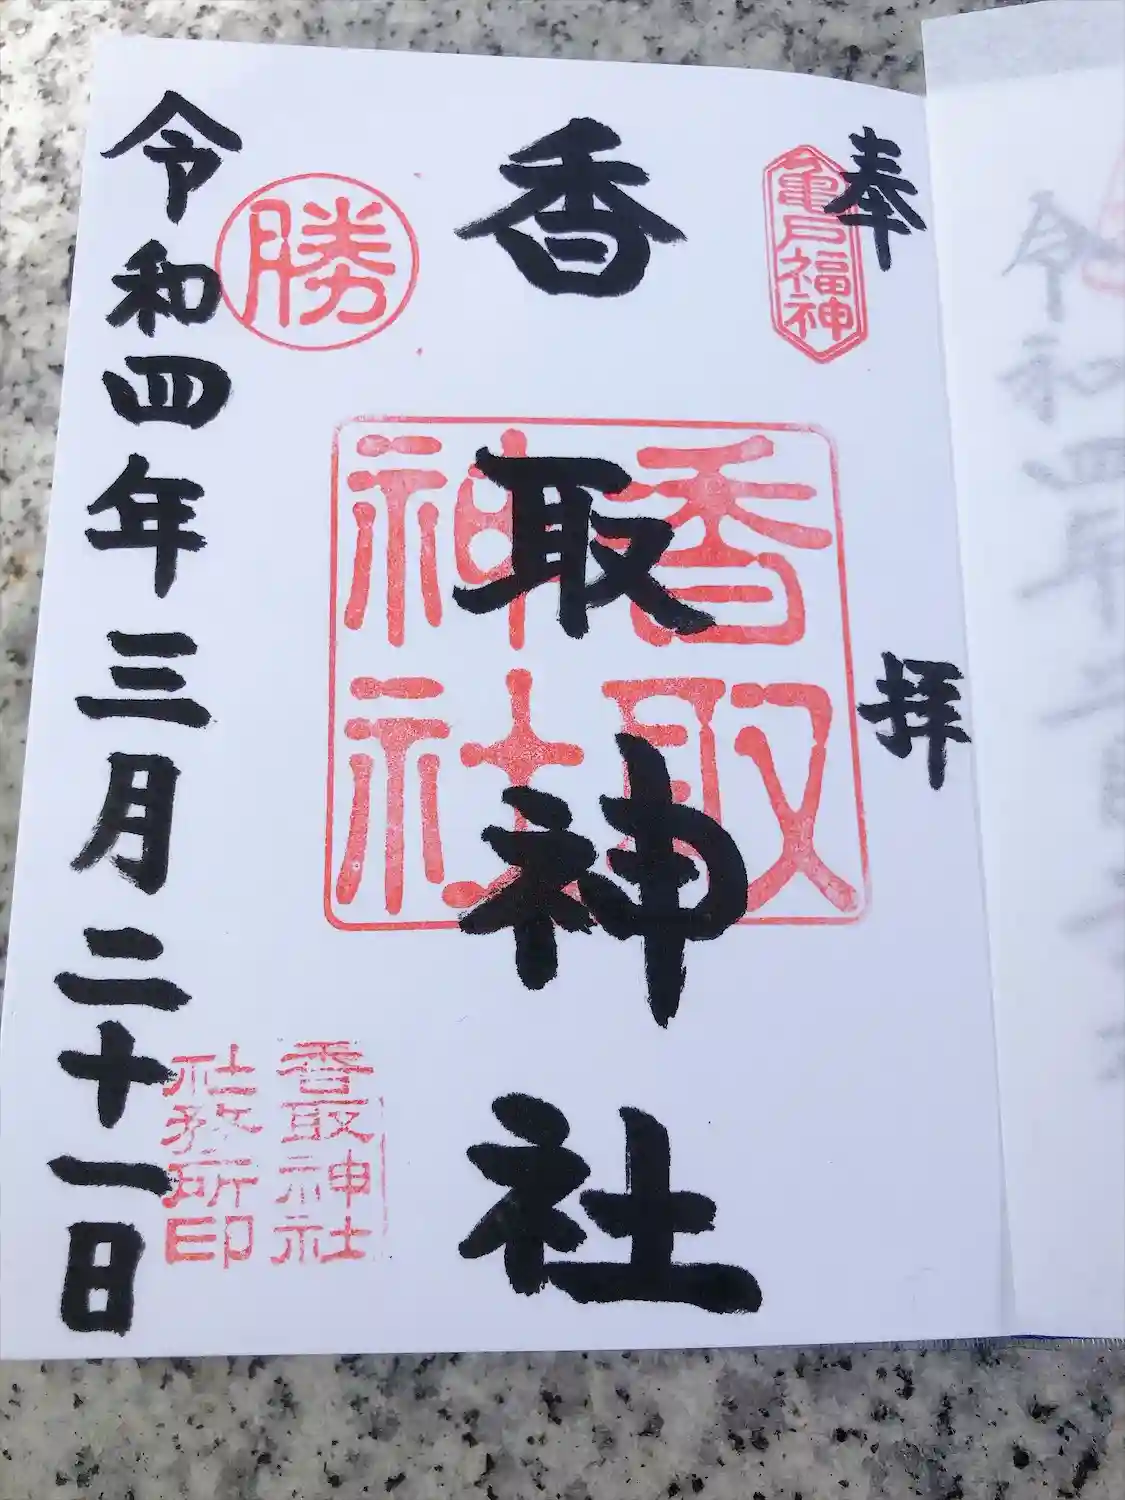 奉拝
亀戸福神
香取神社
香取
神社
勝
香取神社
社務所印
令和四年三月二十一日
令和四年三月